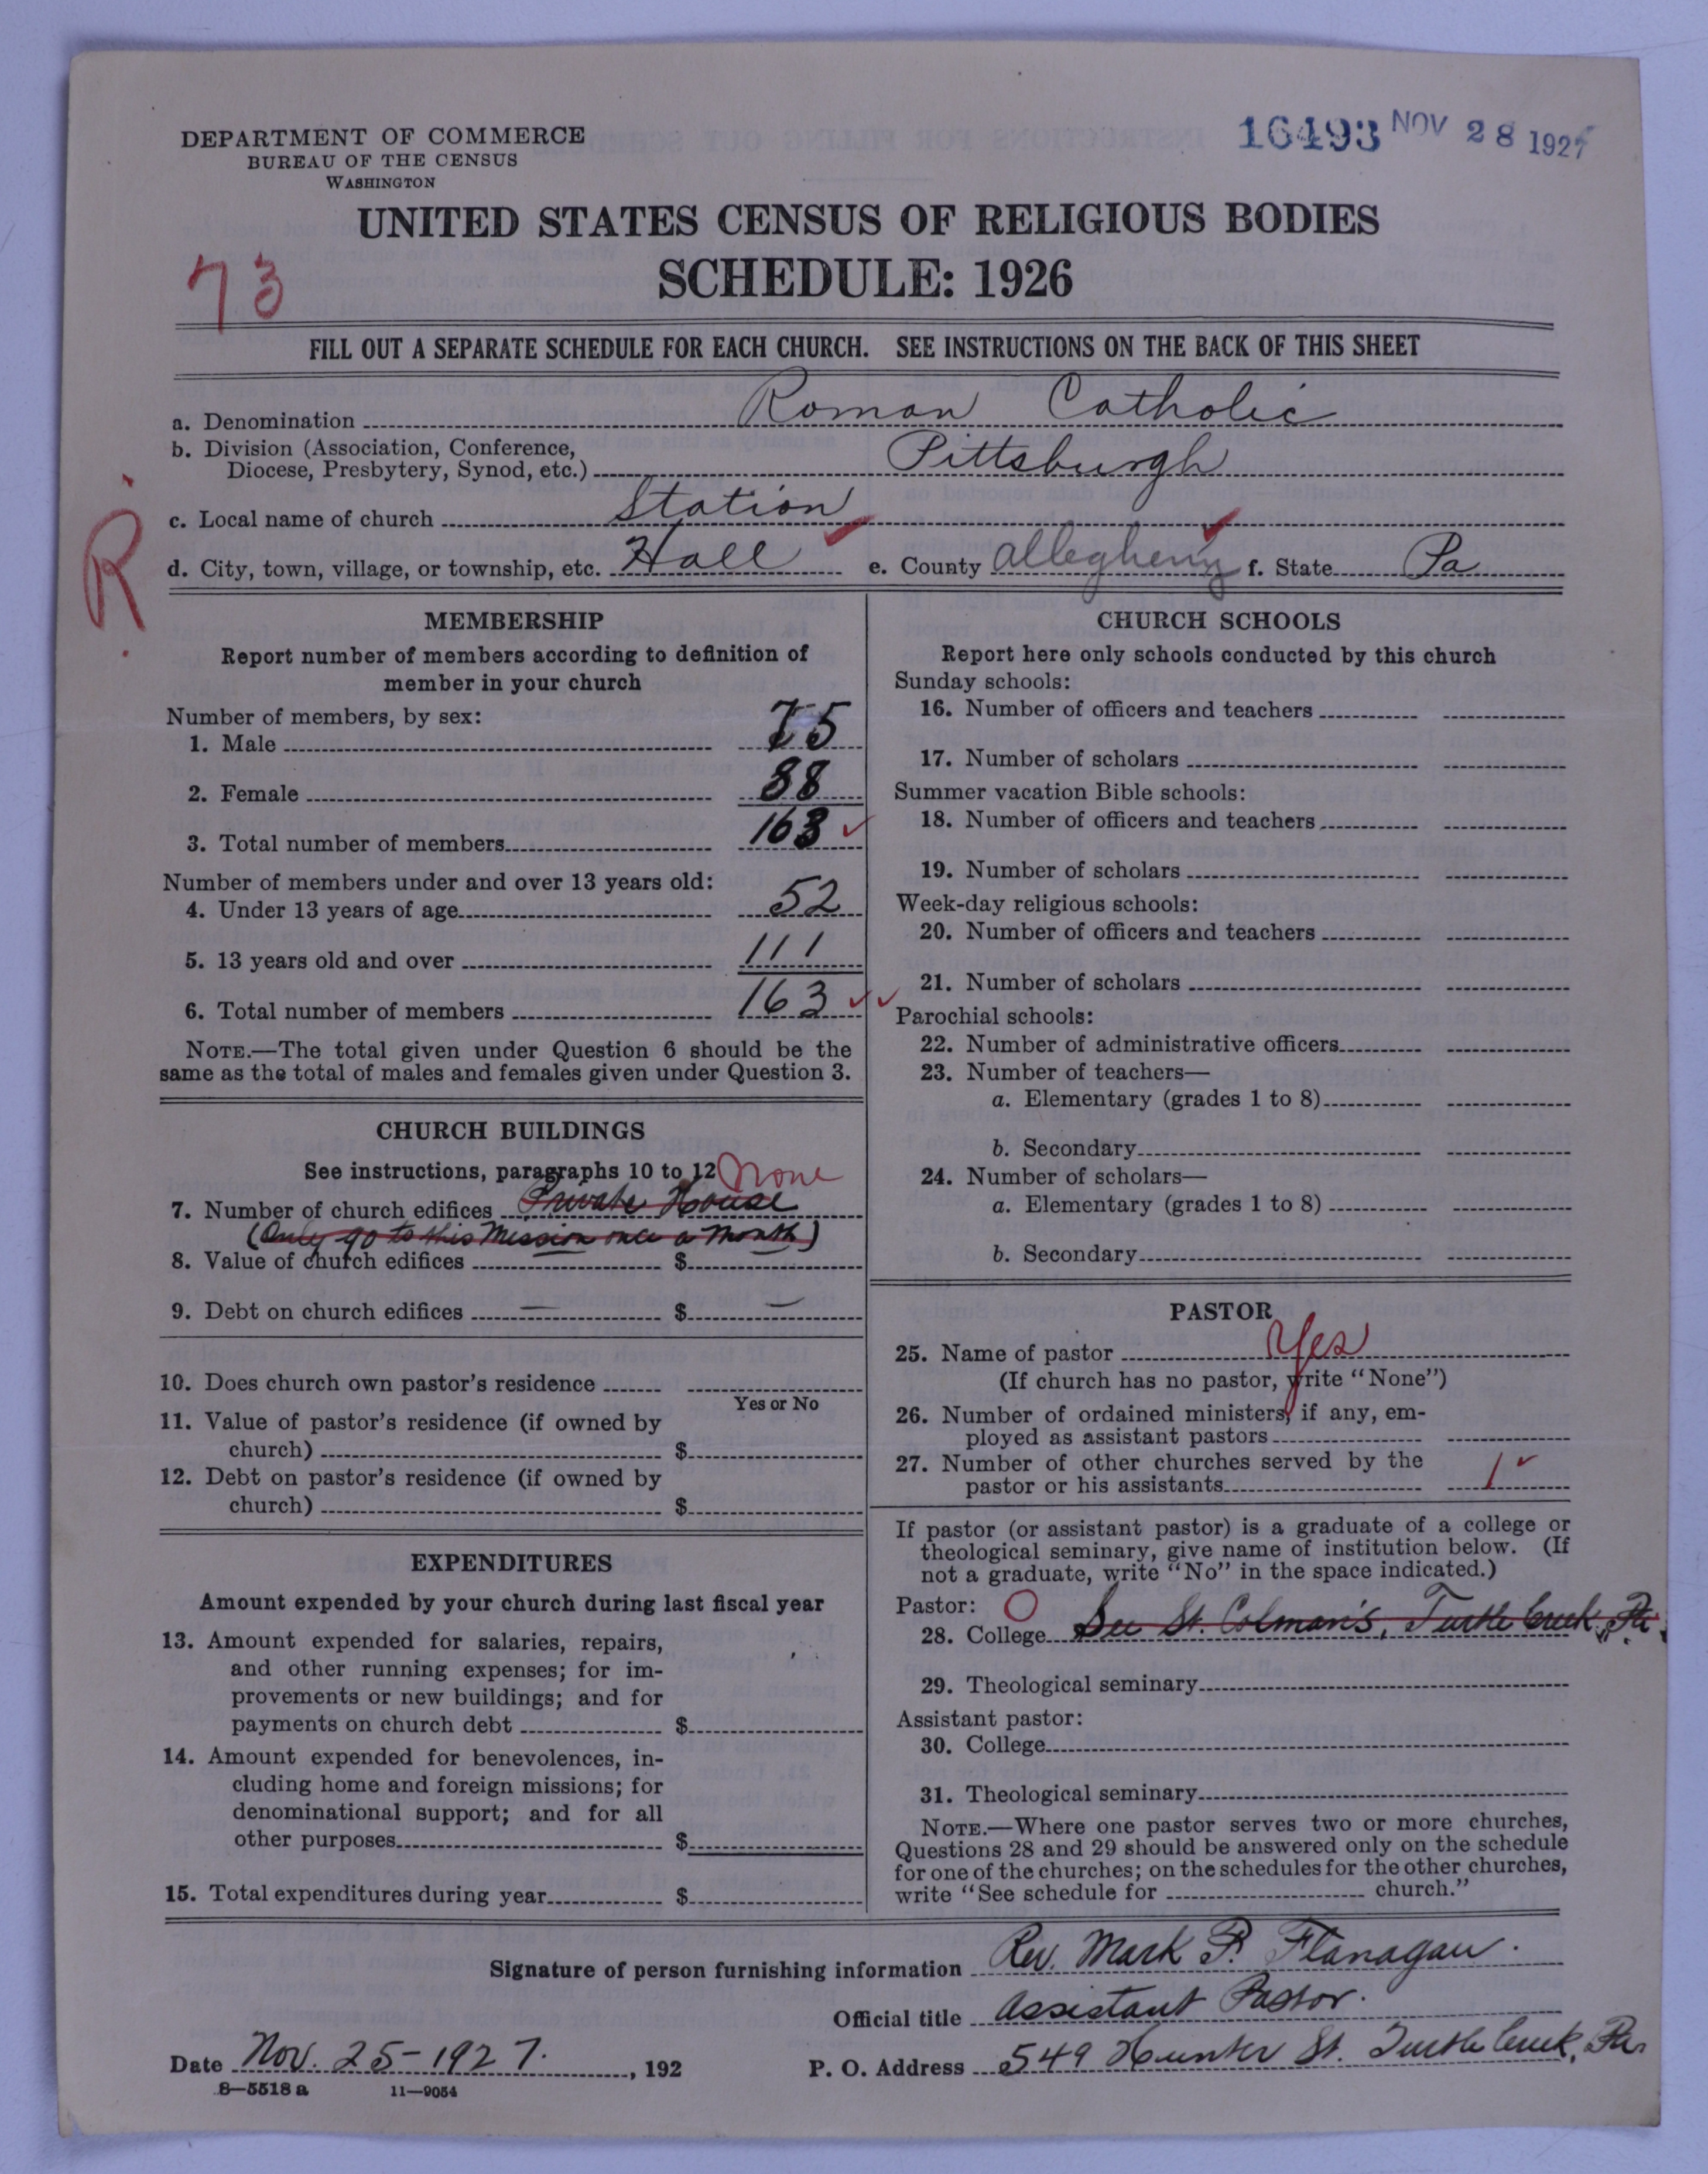 DEPARTMENT OF COMMERCE
BUREAU OF THE CENSUS
WASHINGTON
16493 NOV 28 1927
UNITED STATES CENSUS OF RELIGIOUS BODIES
SCHEDULE: 1926
73
FILL OUT A SEPARATE SCHEDULE FOR EACH CHURCH. SEE INSTRUCTIONS ON THE BACK OF THIS SHEET
a. Denomination Roman Catholic
b. Division (Association, Conference,
Diocese, Presbytery, Synod, etc.) Pittsburgh
c. Local name of church Station
d. City, town, village, or township, etc. Hall e. County Allegheny f. State Pa
R
MEMBERSHIP
Report number of members according to definition of
member in your church
Number of members, by sex:
1. Male 75
2. Female 88
3. Total number of members 163
Number of members under and over 13 years old:
4. Under 13 years of age 52
5. 13 years old and over 111
6. Total number of members 163
NOTE.—The total given under Question 6 should be the
same as the total of males and females given under Question 3.
CHURCH BUILDINGS
See instructions, paragraphs 10 to 12 None
7. Number of church edifices Private House
(Only go to this Mission once a month)
8. Value of church edifices $
9. Debt on church edifices — $ —
10. Does church own pastor's residence
Yes or No
11. Value of pastor's residence (if owned by
church) $
12. Debt on pastor's residence (if owned by
church) $
EXPENDITURES
Amount expended by your church during last fiscal year
13. Amount expended for salaries, repairs,
and other running expenses; for im-
provements or new buildings; and for
payments on church debt $
14. Amount expended for benevolences, in-
cluding home and foreign missions; for
denominational support; and for all
other purposes $
15. Total expenditures during year $
CHURCH SCHOOLS
Report here only schools conducted by this church
Sunday schools:
16. Number of officers and teachers
17. Number of scholars
Summer vacation Bible schools:
18. Number of officers and teachers
19. Number of scholars
Week-day religious schools:
20. Number of officers and teachers
21. Number of scholars
Parochial schools:
22. Number of administrative officers
23. Number of teachers—
a. Elementary (grades 1 to 8)
b. Secondary
24. Number of scholars—
a. Elementary (grades 1 to 8)
b. Secondary
PASTOR
25. Name of pastor Yes
(If church has no pastor, write "None")
26. Number of ordained ministers, if any, em-
ployed as assistant pastors
27. Number of other churches served by the
pastor or his assistants 1
If pastor (or assistant pastor) is a graduate of a college or
theological seminary, give name of institution below. (If
not a graduate, write "No" in the space indicated.)
Pastor: O
28. College See St. Colman's, Turtle Creek, Pa.
29. Theological seminary
Assistant pastor:
30. College
31. Theological seminary
NOTE.—Where one pastor serves two or more churches,
Questions 28 and 29 should be answered only on the schedule
for one of the churches; on the schedules for the other churches,
write "See schedule for church."
Signature of person furnishing information Rev. Mark P. Flanagan.
Official title Assistant Pastor.
Date Nov. 25-1927. , 192 P. O. Address 549 Hunter St. Turtle Creek, Pa.
8—5518 a 11—9054